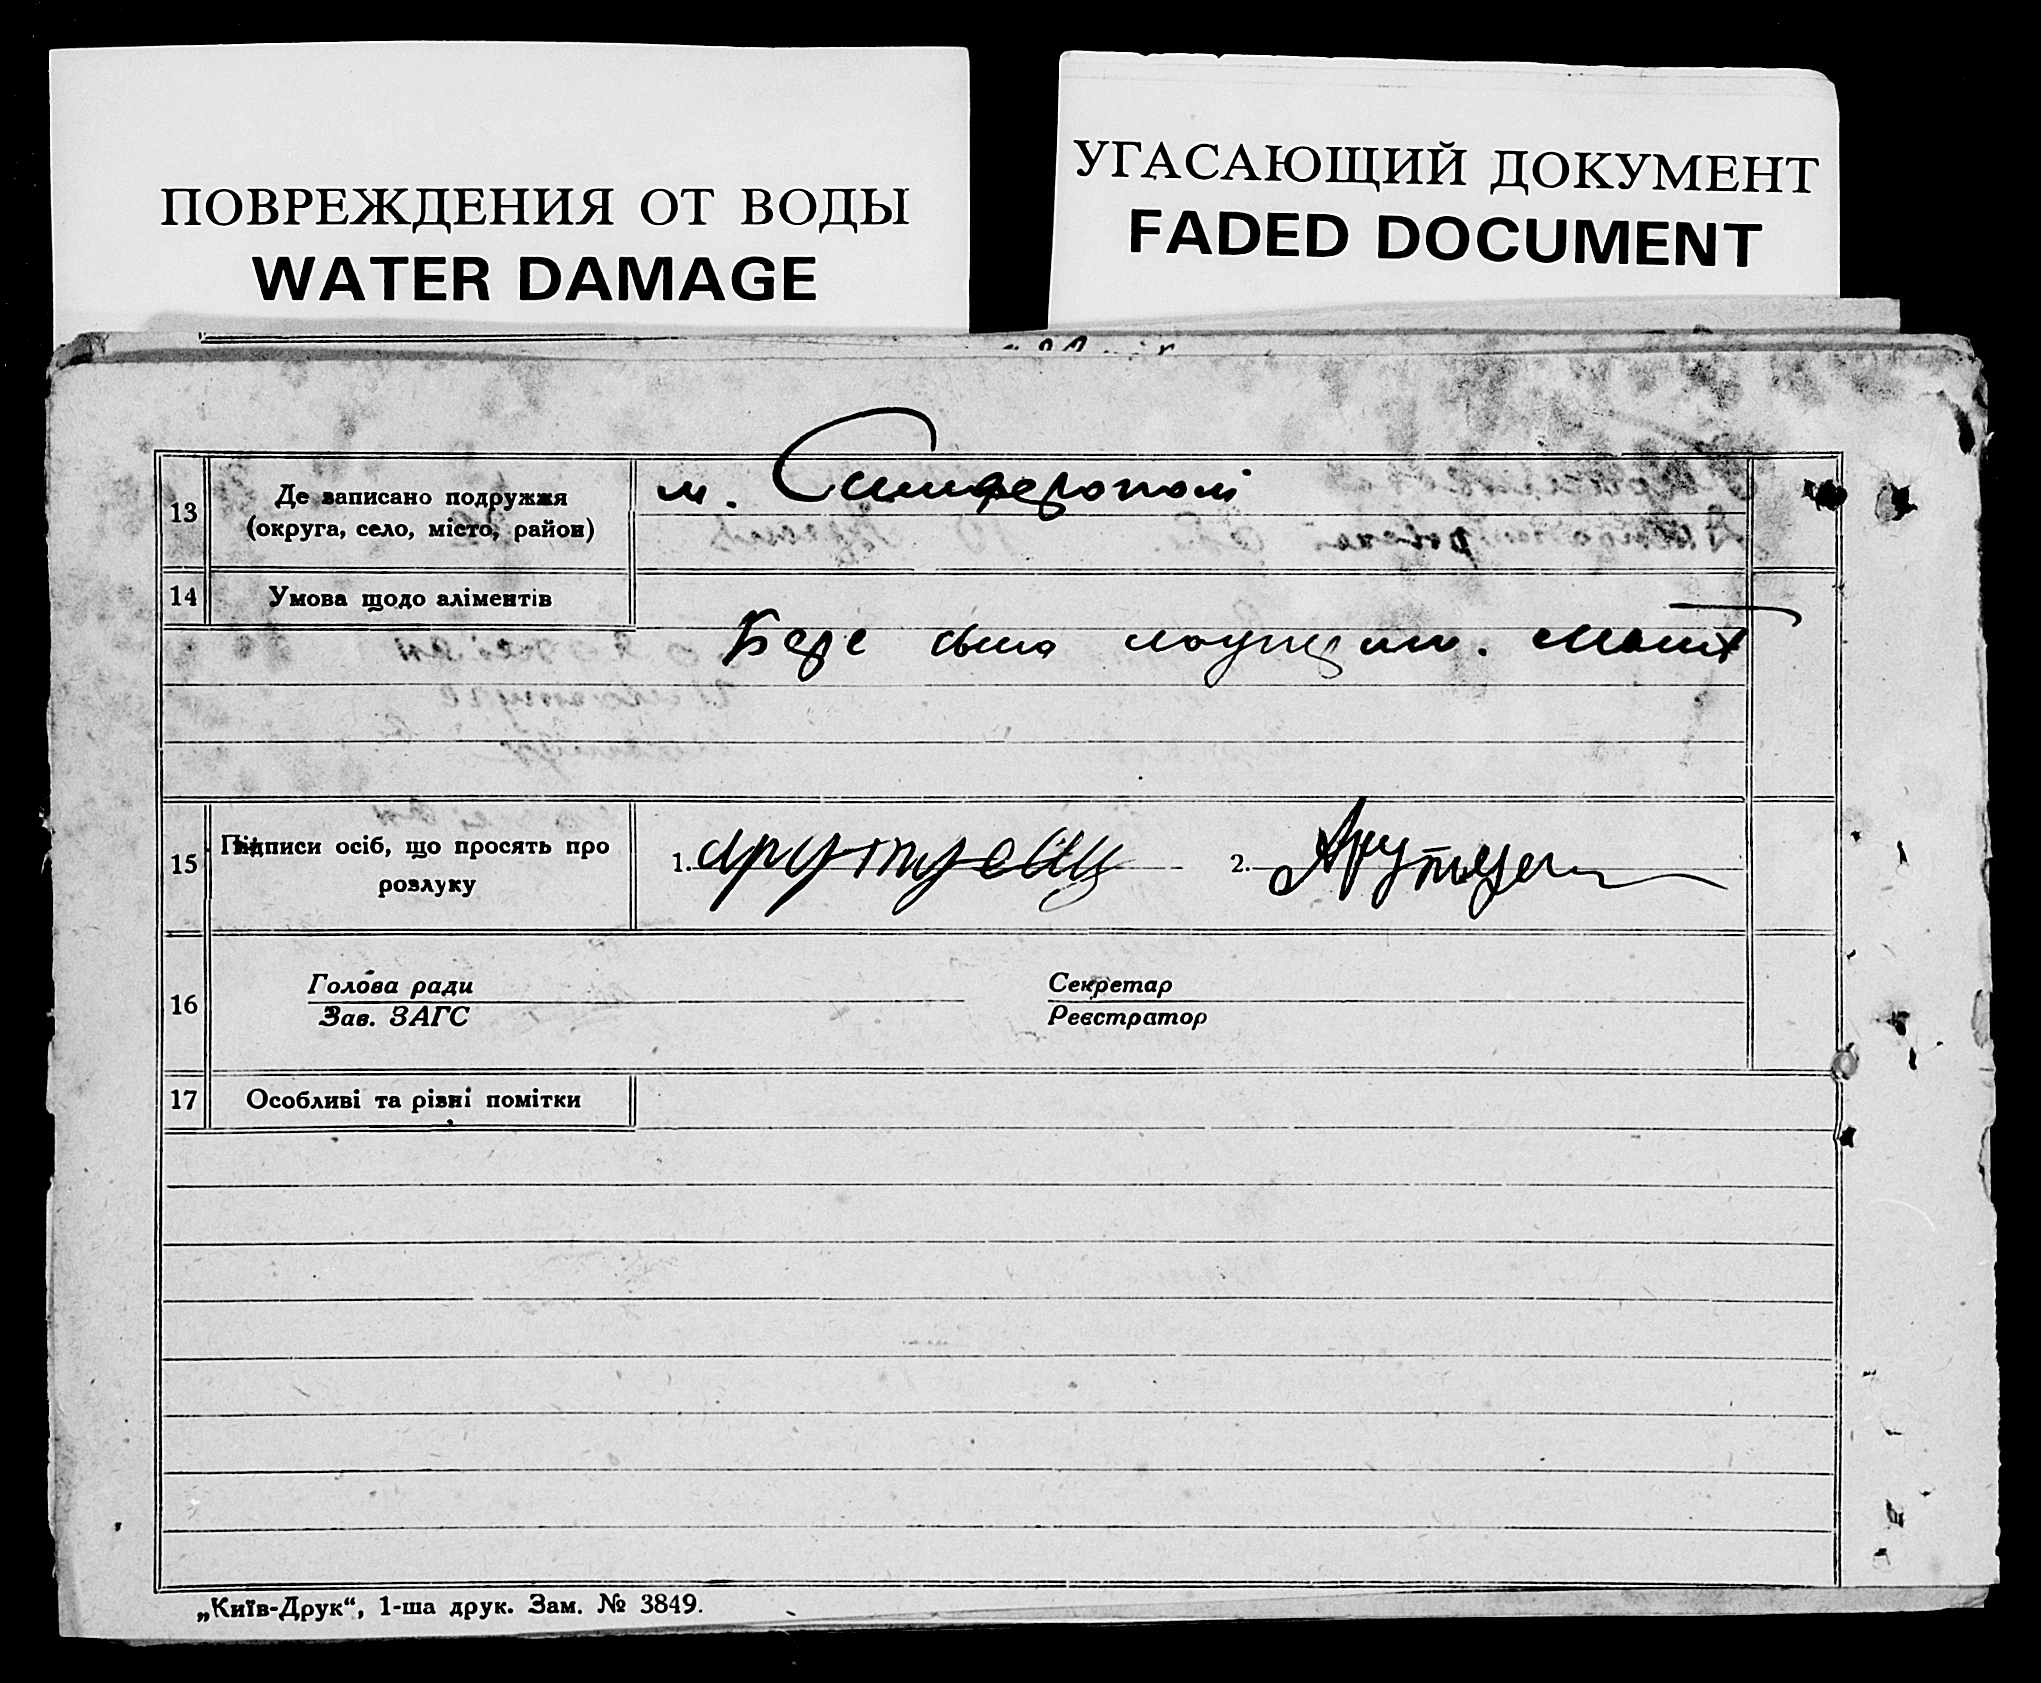 ПОВРЕЖДЕНИЯ ОТ ВОДЫ
WATER DAMAGE
УГАСАЮЩИЙ ДОКУМЕНТ
FADED DOCUMENT
13 Де записано подружжя
(округа, село, місто, район)
м. Симферополі
14 Умова щодо аліментів
Бере сина
15 Підписи осіб, що просять про
розлуку
1.
2.
16 Голова ради
Зав. ЗАГС
Секретар
Реєстратор
17 Особливі та різні помітки
„Київ-Друк“, 1-ша друк. Зам. № 3849.